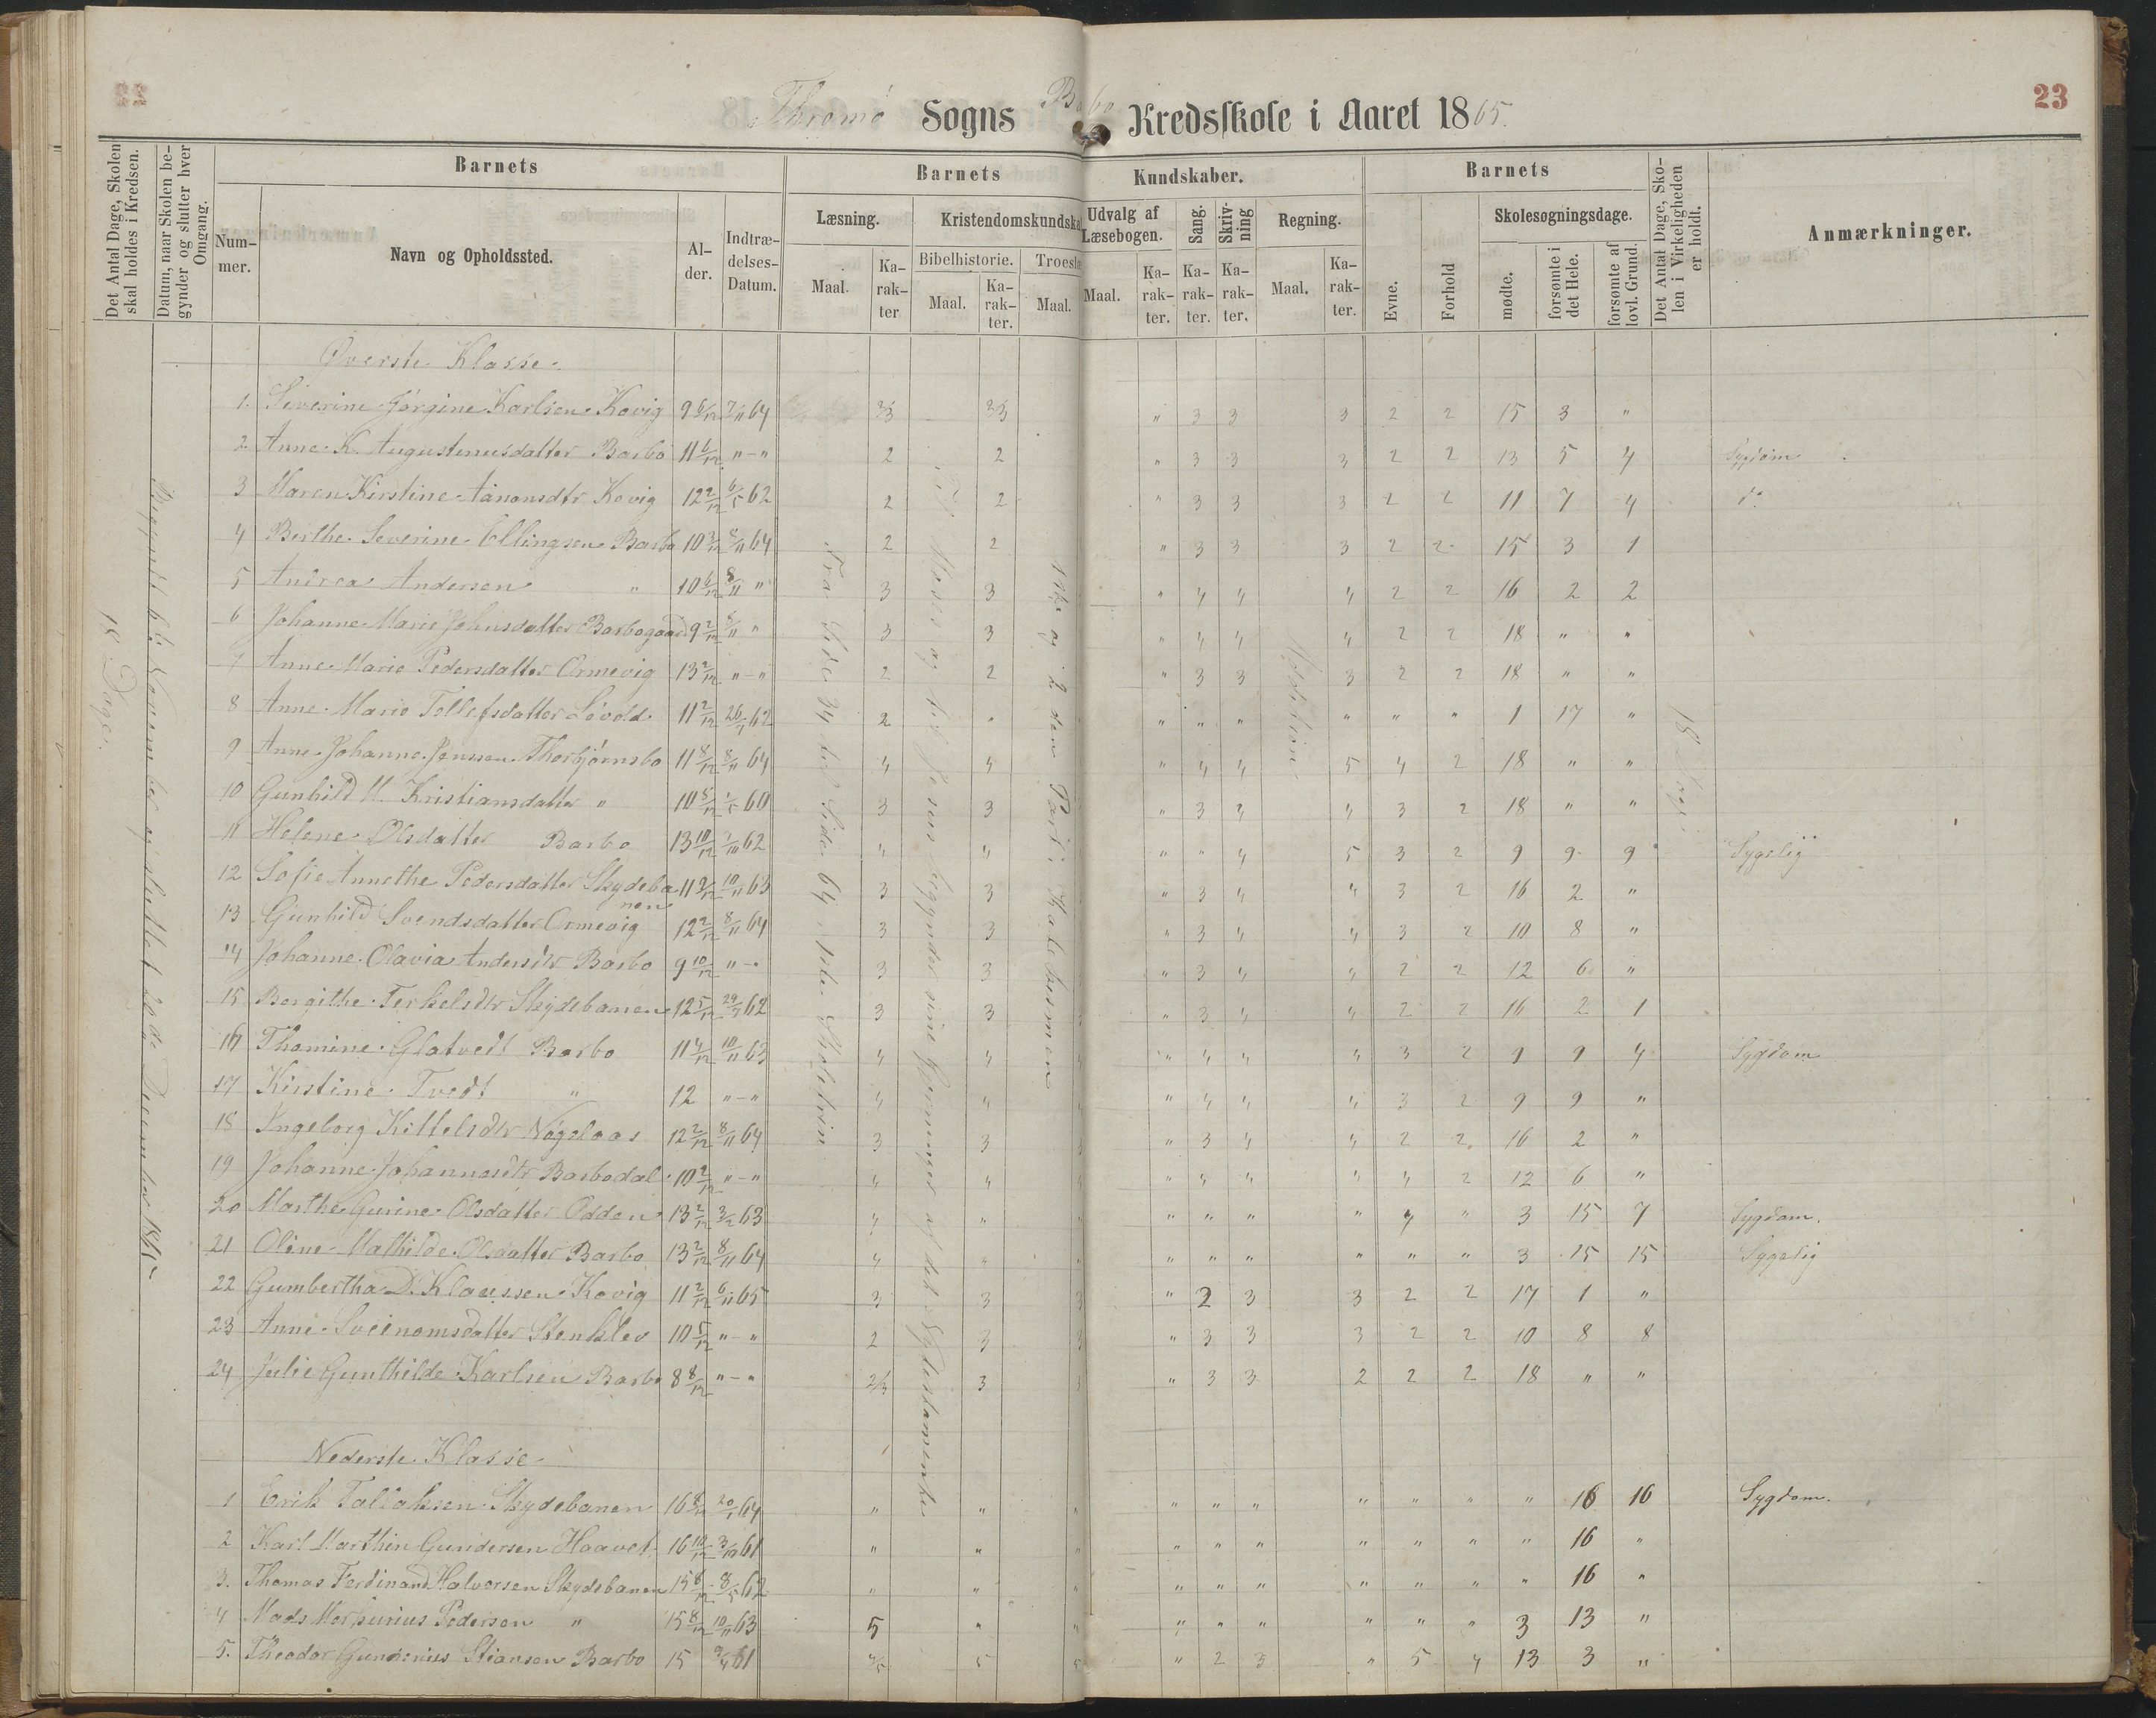 23
Thromø Sogns Barbo Kredsskole i Aaret 1865.
Det Antal Dage, Skolen skal holdes i Kredsen.
Datum, naar Skolen begynder og slutter hver Omgang.
Barnets
Barnets Kundskaber.
Barnets
Det Antal Dage, Skolen i Virkeligheden er holdt.
Anmærkninger.
Nummer.
Navn og Opholdssted.
Alder.
Indtrædelses-Datum.
Læsning.
Kristendomskundska
Udvalg af Læsebogen.
Sang.
Skrivning
Regning.
Evne.
Forhold
Skolesøgningsdage.
Bibelhistorie.
Troeslæ
Maal.
Karakter
Maal.
Karakter.
Maal.
Maal.
Karakter.
Karakter.
Karakter.
Maal.
Karakter.
mødte.
forsømte i det Hele.
forsømte af lovl. Grund.
18 Dage.
Begyndt d. 6te November og sluttet 22de December 1865
Fra Side 34 til Side 64 i
Moses og til Jesus begynder sine Gjerninger af det Ny Testamente
1ste og 2den Part i Katekismen
Addition
18 Dage
Øverste Klasse
1. Severine Jørgine Karlsen Kovig 9 6/12 7/11 64 2/3 2/3 " 3 3 3 2 2 15 3 "
2. Anne K. Augustinusdatter Barbo 11 6/12 "-" 2 2 " 3 3 3 2 2 13 5 4 Sygdom
3 Maren Kirstine Aanonsdtr Kovig 12 2/12 6/5 62 2 2 " 3 3 3 2 2 11 7 4 do
4 Berthe Severine Ellingsen Barbo 10 3/12 8/11 64 2 2 " 3 3 3 2 2 15 3 1
5 Andrea Andersen " 10 6/12 8/11 " 3 3 " 4 4 4 2 2 16 2 2
6 Johanne Marie Johnsdatter Barbogaard 9 2/12 8/11 " 3 3 " 4 4 4 2 2 18 " "
7 Anne Marie Pedersdatter Ormevig 13 2/12 "-" 2 2 " 3 3 3 2 2 18 " "
8 Anne Marie Tellefsdatter Søvold 11 2/12 62 2 " " " " " " " 1 17 "
9 Anne Johanne Jenssen Thorbjørnsbo 11 8/12 8/11 64 4 4 " 4 4 5 4 2 18 " "
10 Gunhild M. Kristiansdatter " 10 5/12 60 3 3 " 3 4 4 3 2 18 " "
11 Helene Olsdatter Barbo 13 10/12 62 4 4 " " 4 5 3 2 9 9 9 Sygelig
12 Sofie Annethe Pedersdatter Skydebanen 11 9/12 10/11 63 3 3 " 3 4 4 3 2 16 2 "
13 Gunhild Svendsdatter Ormevig 12 2/12 8/11 64 3 3 " 3 4 4 3 2 10 8 "
14 Johanne Olavia Andersdtr Barbo 9 10/12 "-" 3 3 " 3 4 4 2 2 12 6 "
15 Bergithe Terkelsdtr Skydebanen 12 5/12 62 3 3 " 3 4 4 2 2 16 2 1
16 Thomine Glatvedt Barbo 11 4/12 10/11 63 4 4 " 4 4 4 3 2 9 9 4 Sygdom
17 Kirstine Tvedt " 12 "-" 4 4 4 " 4 4 4 3 2 9 9 "
18 Ingeborg Kittelsdtr Nøgelaas 12 2/12 8/11 64 3 3 3 " 3 4 4 2 2 16 2 "
19 Johanne Johannesdtr Barbodal 10 2/12 "-" 4 4 4 " 4 4 4 4 2 12 6 "
20 Marthe Gurine Olsdatter Odden 13 2/12 3/2 63 4 " " " " " " 4 " 3 15 7 Sygdom.
21 Oline Mathilde Olsdatter Barbo 13 2/12 8/11 64 4 " " " " " " " " 3 15 15 Sygelig
22 Gumbertha D. Klaussen Kovig 11 2/12 6/11 65 3 3 3 " 2 3 3 2 2 17 1 "
23 Anne Svenomsdatter Stenklev 10 5/12 "-" 2 3 3 " 3 3 3 2 2 10 8 8
24 Julie Gunthilde Karlsen Barbo 8 8/12 "-" 2/3 3 3 " 3 3 2 2 2 18 " "
Nederste Klasse
1 Erik Tallaksen Skydebanen 16 8/12 64 " " " " " " " " " " 16 16 Sygdom.
2 Karl Marthin Gundersen Haavet 16 10/12 3/10 61 " " " " " " " " " " 16 "
3. Thomas Ferdinand Halvorsen Skydebanen 15 8/12 8/5 62 " " " " " " " " " " 16 "
4 Mads Pedersen " 15 8/12 10/11 63 5 " " " " " " " " 3 13 "
5. Theodor Gunderius Stiansen Barbo 15 61 4/5 5 5 " 2 3 " 5 4 13 3 "